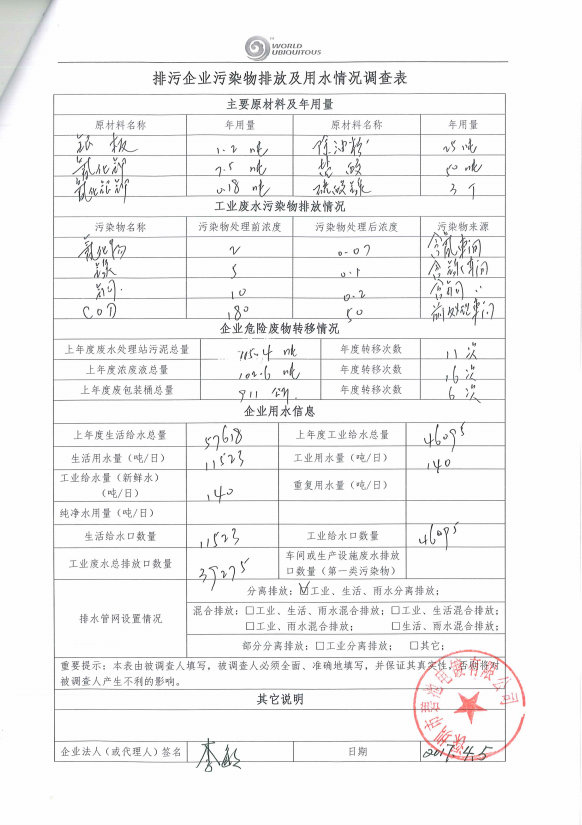 WORLD
UBIQUITOUS
排污企业污染物排放及用水情况调查表
主要原材料及年用量
原材料名称 年用量 原材料名称 年用量
1.2 吨 除油粉 25吨
氰化 7.5 吨 盐酸 50吨
氰化 0.18 吨 3
工业废水污染物排放情况
污染物名称 污染物处理前浓度 污染物处理后浓度 污染物来源
氰化物 2 0.07 含氰车间
5 0.1 车间
10 0.2
COD 180 50 前处理车间
企业危险废物转移情况
上年度废水处理站污泥总量 吨 年度转移次数 11次
上年度浓废液总量 102.6 吨 年度转移次数 16次
上年度废包装桶总量 911 公斤 年度转移次数 6次
企业用水信息
上年度生活给水总量 57618 上年度工业给水总量 46095
生活用水量（吨/日） 11523 工业用水量（吨/日） 140
工业给水量（新鲜水）（吨/日） 140 重复用水量（吨/日）
纯净水用量（吨/日）
生活给水口数量 11523 工业给水口数量 46095
工业废水总排放口数量 39275 车间或生产设施废水排放口数量（第一类污染物）
排水管网设置情况
分离排放：☑工业、生活、雨水分离排放；
混合排放：□工业、生活、雨水混合排放；□工业、生活混合排放；
□工业、雨水混合排放； □生活、雨水混合排放；
部分分离排放：□工业分离排放； □其它；
重要提示：本表由被调查人填写，被调查人必须全面、准确地填写，并保证其真实性，否则将对
被调查人产生不利的影响。
其它说明
企业法人（或代理人）签名 李 日期 2017.4.5